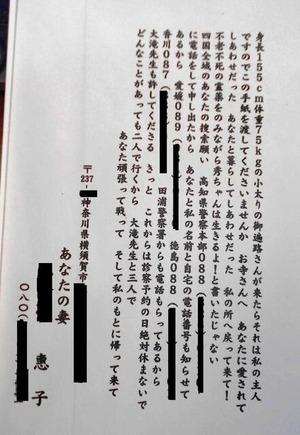 身長155cm体重75kgの小太りの御遍路さんが来たらそれは私の主人
ですのでこの手紙を渡してくださいませんか　お寺さんへ　あなたに愛されて
しあわせだった　あなたと暮らしてしあわせだった　私の所へ戻って来て！
不老不死の霊薬をのみながら秀ちゃんは生きるよ！と書いたじゃない
四国全域のあなたの捜索願い　高知県警察本部088
に電話をして申し出たから　あなたと私の名前と自宅の電話番号も知らせて
あるから　愛媛089　徳島088
香川087　田浦警察署からも電話もらってあるから
大滝先生も許してくださる　きっと　これからは診察予約の日絶対休まないで
どんなことがあっても二人で行くから　大滝先生と三人で
あなた頑張って戦って　そして私のもとに帰って来て
〒237-
神奈川県横須賀市
あなたの妻
恵子
080(